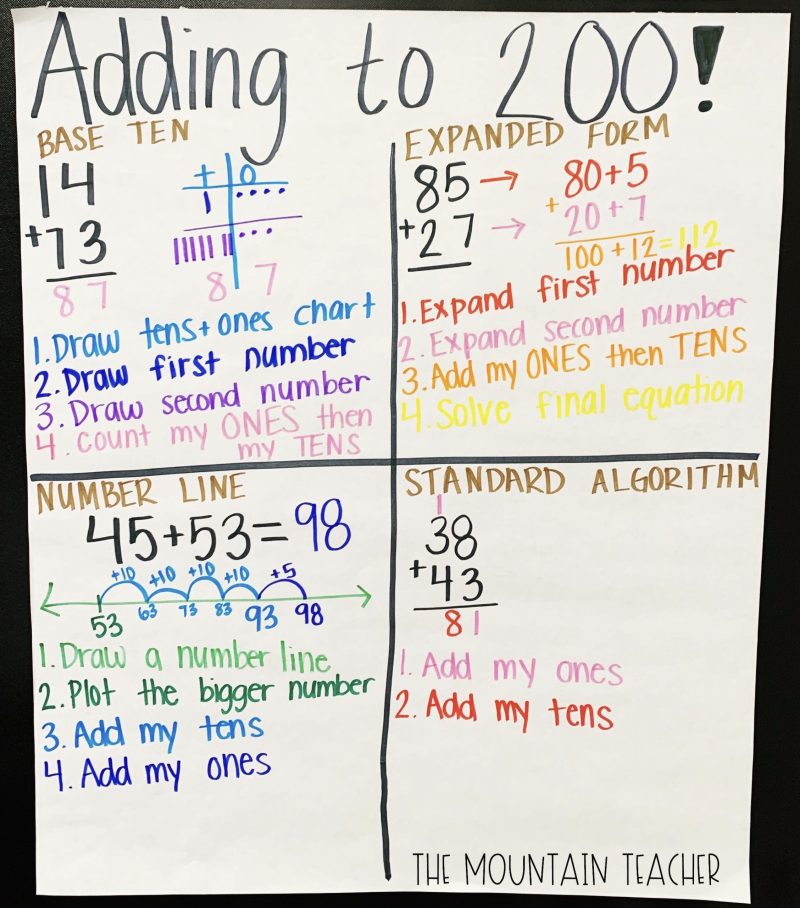 Adding to 200!
BASE TEN
14
+73
87
+ 0
1
8 7
1. Draw tens+ones chart
2. Draw first number
3. Draw second number
4. Count my ONES then
my TENS
EXPANDED FORM
85 → 80+5
+27 → + 20+7
100+12=112
1. Expand first number
2. Expand second number
3. Add my ONES then TENS
4. Solve final equation
NUMBER LINE
45+53=98
+10 +10 +10 +10 +5
53 63 73 83 93 98
1. Draw a number line
2. Plot the bigger number
3. Add my tens
4. Add my ones
STANDARD ALGORITHM
1
38
+43
81
1. Add my ones
2. Add my tens
THE MOUNTAIN TEACHER